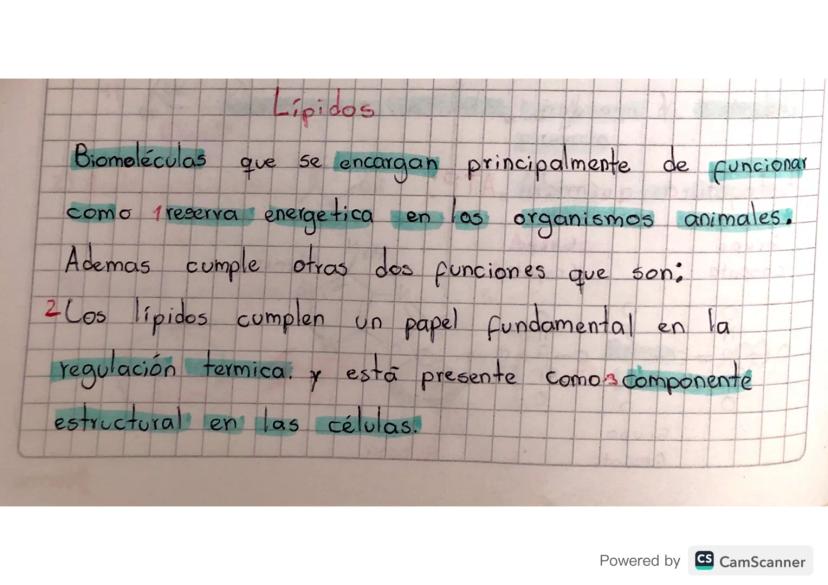 Lípidos
Biomoléculas que se encargan principalmente de funcionar
como 1 reserva energetica en los organismos animales.
Ademas cumple otras dos funciones que son:
2 Los lípidos cumplen un papel fundamental en la
regulación termica. y está presente como 3 componente
estructural en las células.
Powered by CS CamScanner